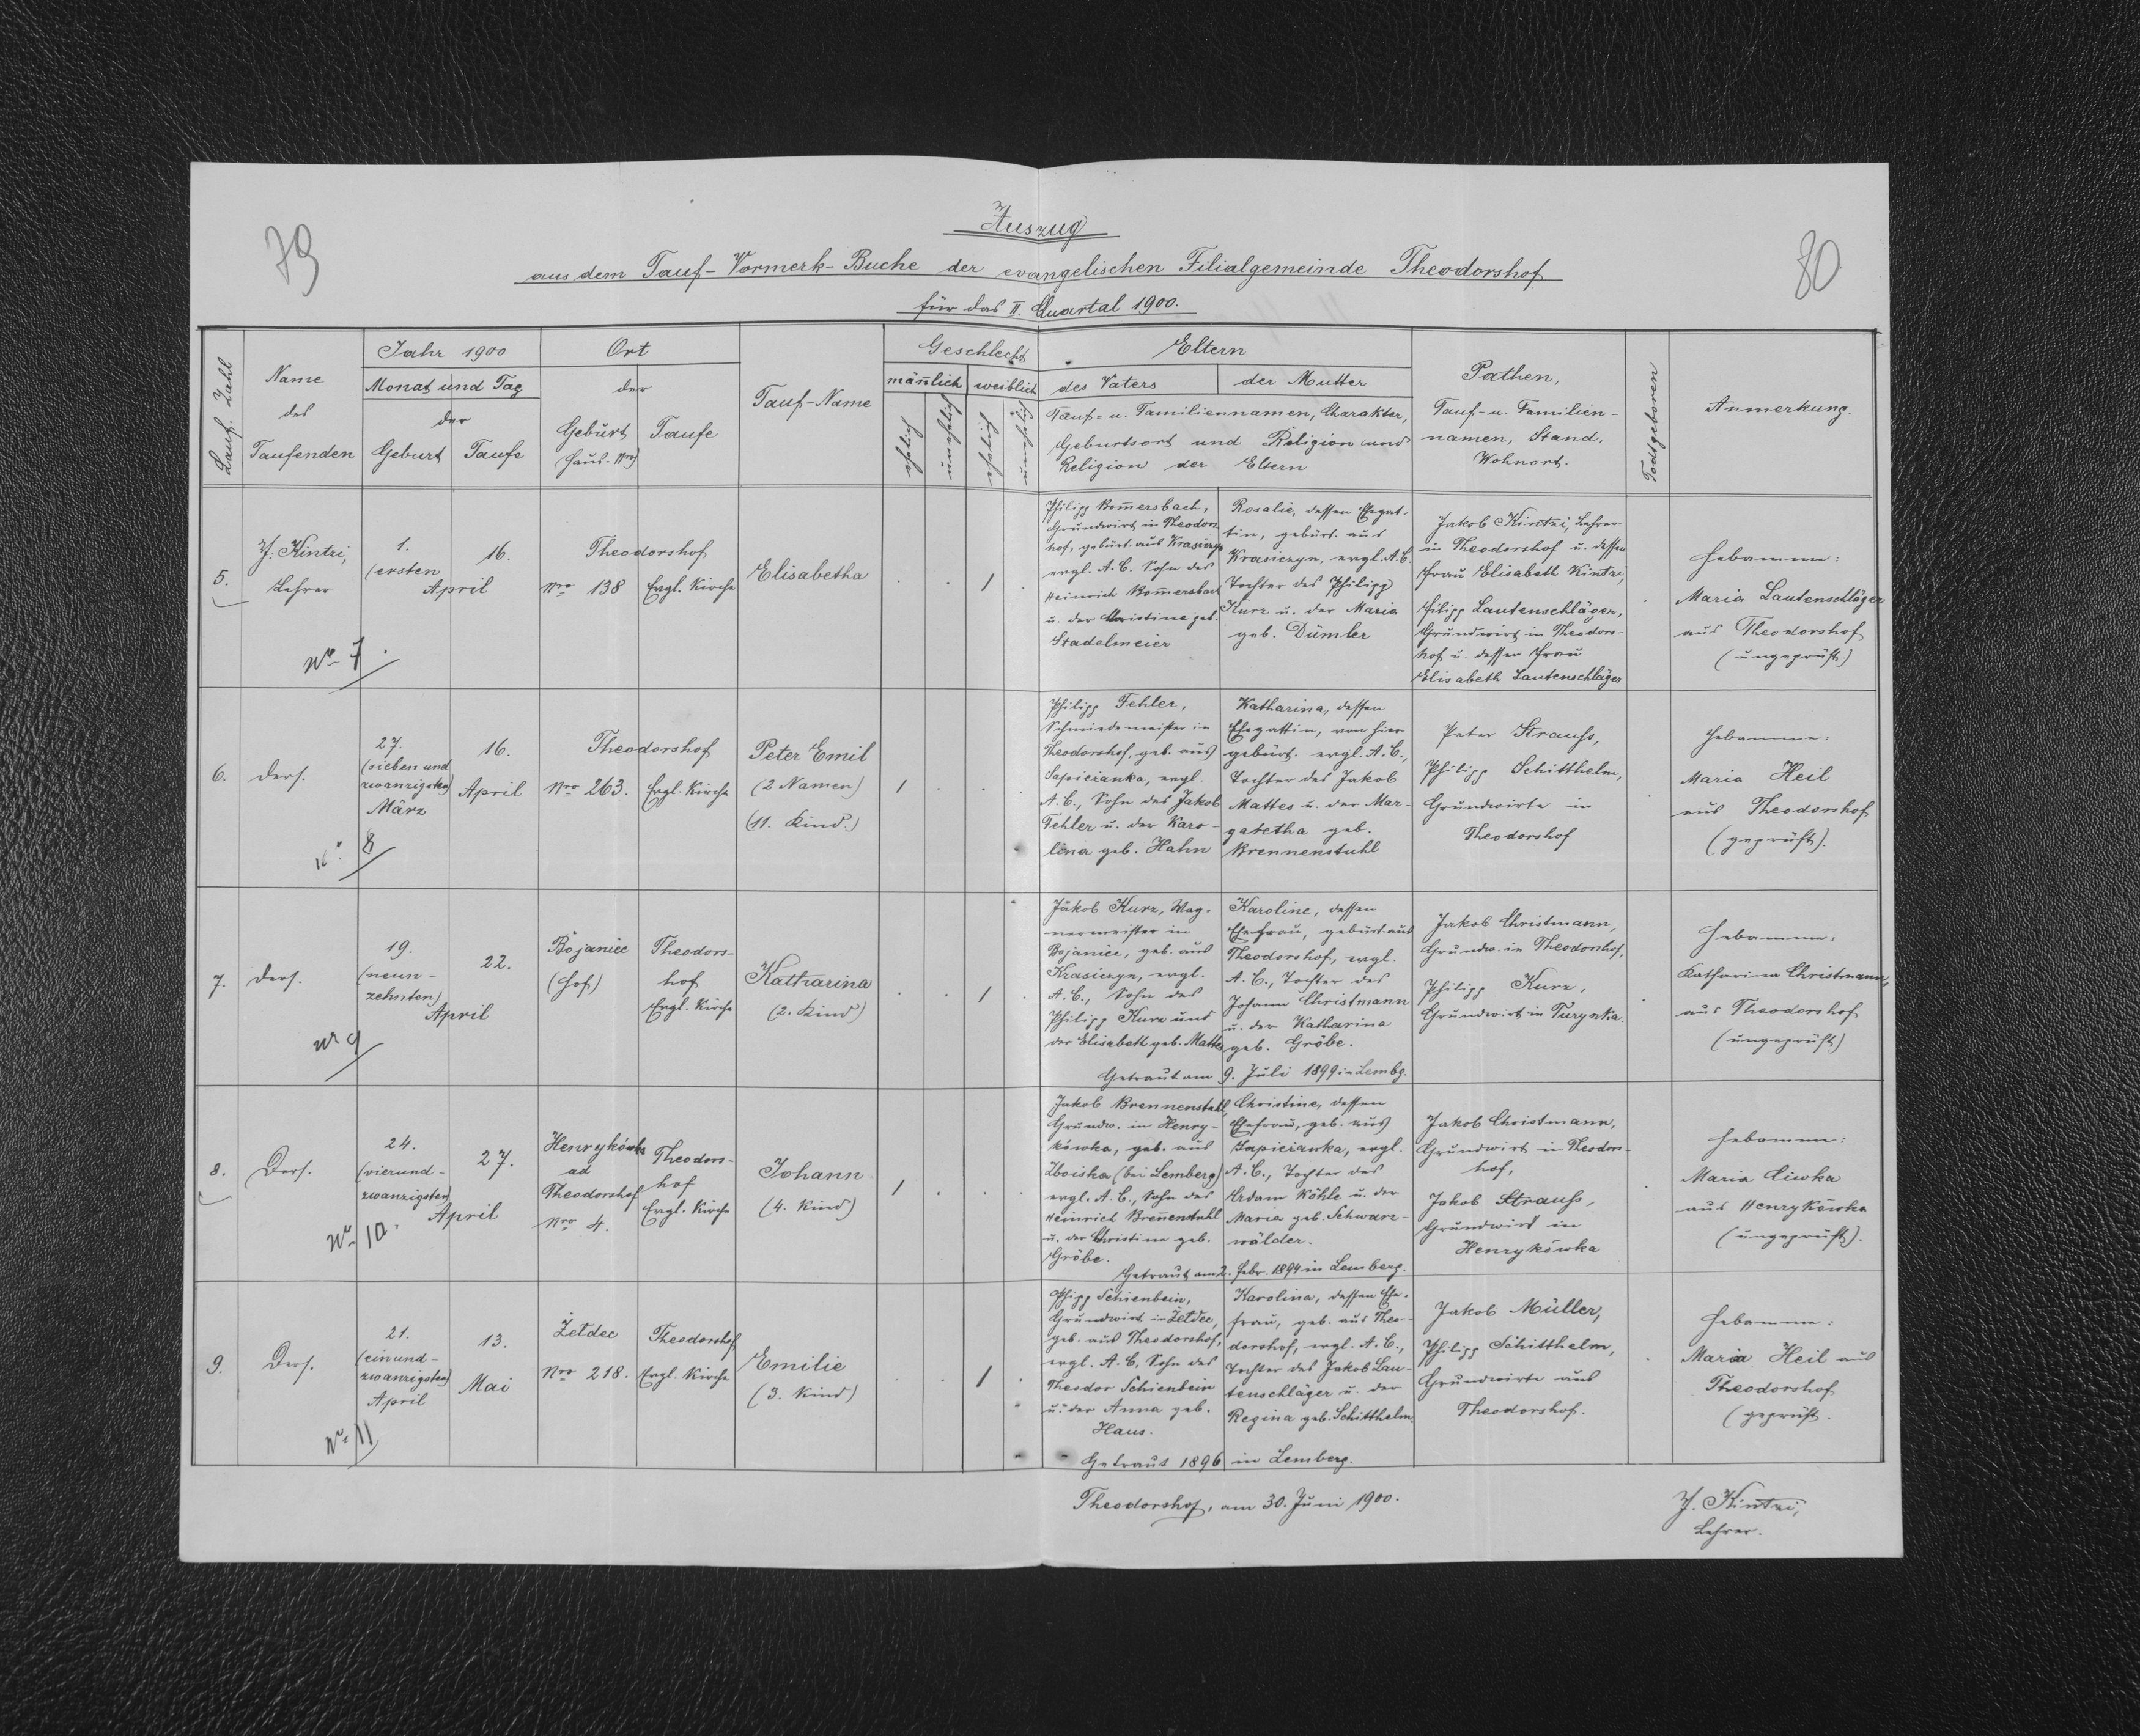 79
80
Auszug
aus dem Tauf-Vormerk-Buche der evangelischen Filialgemeinde Theodorshof
für das II. Quartal 1900.
Lauf. Zahl
Name
des
Taufenden
Jahr 1900
Monat und Tag
der
Geburt
Taufe
Ort
der
Geburt
(Haus-Nro)
Taufe
Tauf-Name
Geschlecht
män̅lich
weiblich
ehelich
unehelich
ehelich
unehelich
Eltern
des Vaters
der Mutter
Tauf- u. Familiennamen, Charakter,
Geburtsort und Religion und
Religion der Eltern
Pathen,
Tauf- u. Familien-
namen, Stand,
Wohnort.
Todtgeboren
Anmerkung.
5.
J. Kintzi,
Lehrer
Nro 7.
1.
(ersten
16.
April
Theodorshof
Nro 138
Evgl. Kirche
Elisabetha
1
Philipp Kom̅ersbach,
Grundwirt in Theodors-
hof, gebürt. aus Krasiczyn
evgl. A.C. Sohn des
Heinrich Kom̅ersbach
u. der Christine geb.
Stadelmeier
Rosalie, dessen Ehegat-
tin, gebürt. aus
Krasiczyn, evgl. A.C.
Tochter des Philipp
Kurz u. der Maria
geb. Dümler
Jakob Kintzi, Lehrer
in Theodorshof u. dessen
Frau Elisabeth Kintzi,
Filipp Lautenschläger,
Grundwirt in Theodors-
hof u. dessen Frau
Elisabeth Lautenschläger
Hebamme:
Maria Lautenschläger
aus Theodorshof
(ungeprüft)
6.
Ders.
8
27.
(sieben und
zwanzigsten)
März
16.
April
Theodorshof
Nro 263.
Evgl. Kirche
Peter Emil
(2 Namen)
(11. Kind.)
1
Philipp Fehler,
Schmiedemeister in
Theodorshof, geb. aus
Sapiezanka, evgl.
A.C., Sohn des Jakob
Fehler u. der Karo-
lina geb. Hahn
Katharina, dessen
Ehegattin, von hier
gebürt. evgl. A.C.,
Tochter des Jakob
Mattes u. der Mar-
gatetha geb.
Brennenstuhl
Peter Strauss,
Philipp Schitthelm,
Grundwirte in
Theodorshof
Hebamme:
Maria Heil
aus Theodorshof
(geprüft).
7.
Ders.
Nr 9
19.
(neun-
zehnten)
22.
April
Bojaniec
(Hof)
Theodors-
hof
Evgl. Kirche
Katharina
(2. Kind)
1
Jakob Kurz, Wag-
nermeister in
Bojaniec, geb. aus
Krasiczyn, evgl.
A.C., Sohn des
Philipp Kurz und
der Elisabeth geb. Mattes
Karoline, dessen
Ehefrau, gebürt. aus
Theodorshof, evgl.
A.C., Tochter des
Johann Christmann
u. der Katharina
geb. Gröbe.
Getraut am 9. Juli 1899 in Lembg.
Jakob Christmann,
Grundw. in Theodorshof,
Philipp Kurz,
Grundwirt in Turynka.
Hebamme:
Katharina Christmann,
aus Theodorshof
(ungeprüft)
8.
Ders.
Nro 10.
24.
(vierund-
zwanzigsten)
27.
April
Henrykówka
ad
Theodorshof
Nro 4.
Theodors-
hof
Evgl. Kirche
Johann
(4. Kind)
1
Jakob Brennenstuhl,
Grundw. in Henry-
kówka, geb. aus
Zboiska (bei Lemberg)
evgl. A.C., Sohn des
Heinrich Bren̅enstuhl
u. der Christine geb.
Gröbe.
Christine, dessen
Ehefrau, geb. aus
Sapiezanka, evgl.
A.C., Tochter des
Adam Köhle u. der
Maria geb. Schwarz-
wälder.
Getraut am 2. Febr. 1894 in Lemberg.
Jakob Christmann,
Grundwirt in Theodors-
hof,
Jakob Strauss,
Grundwirt in
Henrykówka
Hebamme:
Maria Ciwka
aus Henrykówka
(ungeprüft).
9.
Ders.
Nro 11
21.
(einund-
zwanzigsten)
April
13.
Mai
Żeldec
Nro 218.
Theodorshof,
Evgl. Kirche
Emilie
(3. Kind)
1
Philipp Schienbein,
Grundwirt in Żeldec,
geb. aus Theodorshof,
evgl. A.C. Sohn des
Theodor Schienbein
u. der Anna geb.
Haus.
Karolina, dessen Ehe-
frau, geb. aus Theo-
dorshof, evgl. A.C.,
Tochter des Jakob Lau-
tenschläger u. der
Regina geb. Schitthelm.
Getraut 1896 in Lemberg.
Jakob Müller,
Philipp Schitthelm,
Grundwirte aus
Theodorshof.
Hebamme:
Maria Heil aus
Theodorshof
(geprüft.
Theodorshof, am 30. Juni 1900.
J. Kintzi,
Lehrer.